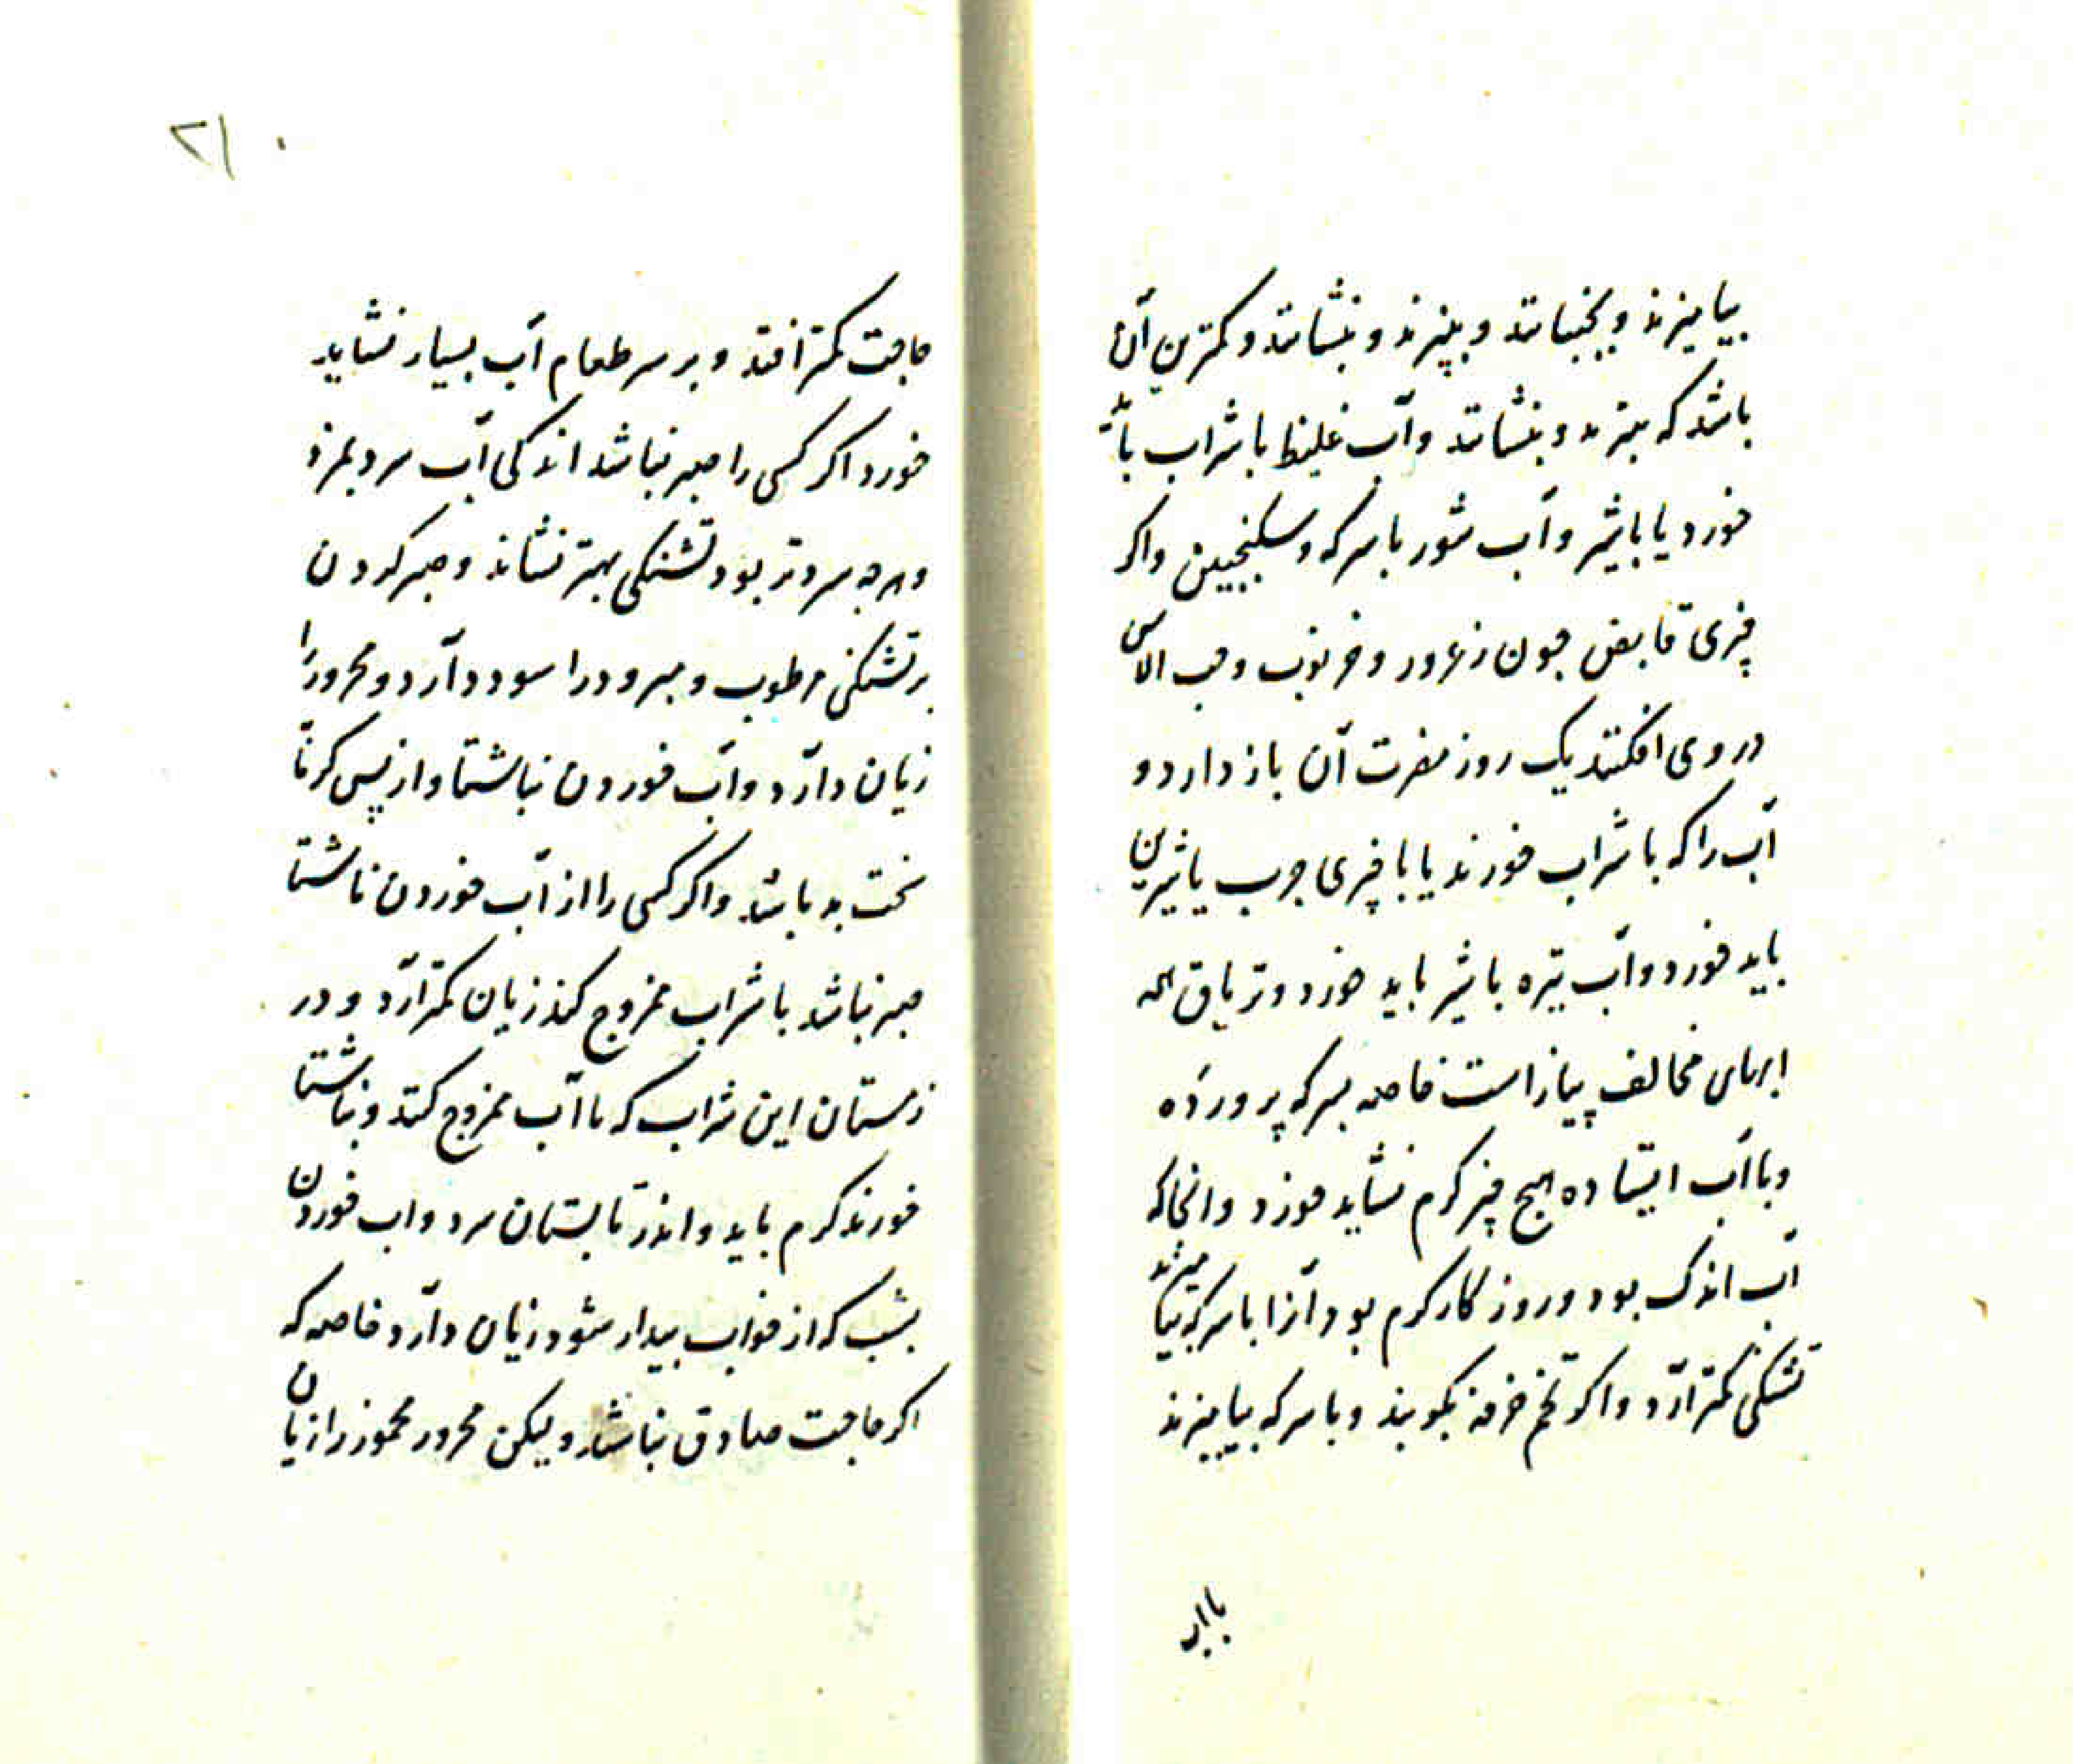 بیامیزند و بجنبانند و بپزند و بنشانند و کمترین آن
باشد که بپزند و بنشانند و آب غلیظ با شراب باید
خورد یا با شیر و آب شور با سرکه و سکنجبین و اکر
چیزی قابض جون زعرور و خرنوب و حب الاس
در وی افکنند یک روز مضرت آن باز دارد و
آب را که با شراب خورند یا با چیزی جرب یا شیرین
باید خورد و آب تیره با شیر باید خورد و تریاق همه
ابهای مخالف پیاز است خاصه بسرکه پرورده
و با آب ایستاده هیج چیز کرم نشاید خورد و انجا که
آب اندک بود و روزکار کرم بود آنرا با سرکه بیامیزند
تشنکی کمتر آرد و اکر تخم خرفه بکوبند و با سرکه بیامیزند
۲۱۰
حاجت کمتر افتد و بر سر طعام آب بسیار نشاید
خورد اکر کسی را صبر نباشد اندکی آب سرد بمزد
و هرجه سردتر بود تشنکی بهتر نشاند و صبر کردن
بر تشنکی مرطوب و مبرود را سود دارد و محرور را
زیان دارد و آب خوردن بناشتا و از پس کرمابه
سخت بد باشد و اکر کسی را از آب خوردن ناشتا
صبر نباشد با شراب ممزوج کند زیان کمتر آرد و در
زمستان این شراب که با آب ممزوج کنند و بناشتا
خورند کرم باید و اندر تابستان سرد و اب خوردن
بشب که از خواب بیدار شود زیان دارد خاصه که
اکر حاجت صادق نباشد ولیکن محرور مخمور را زیان